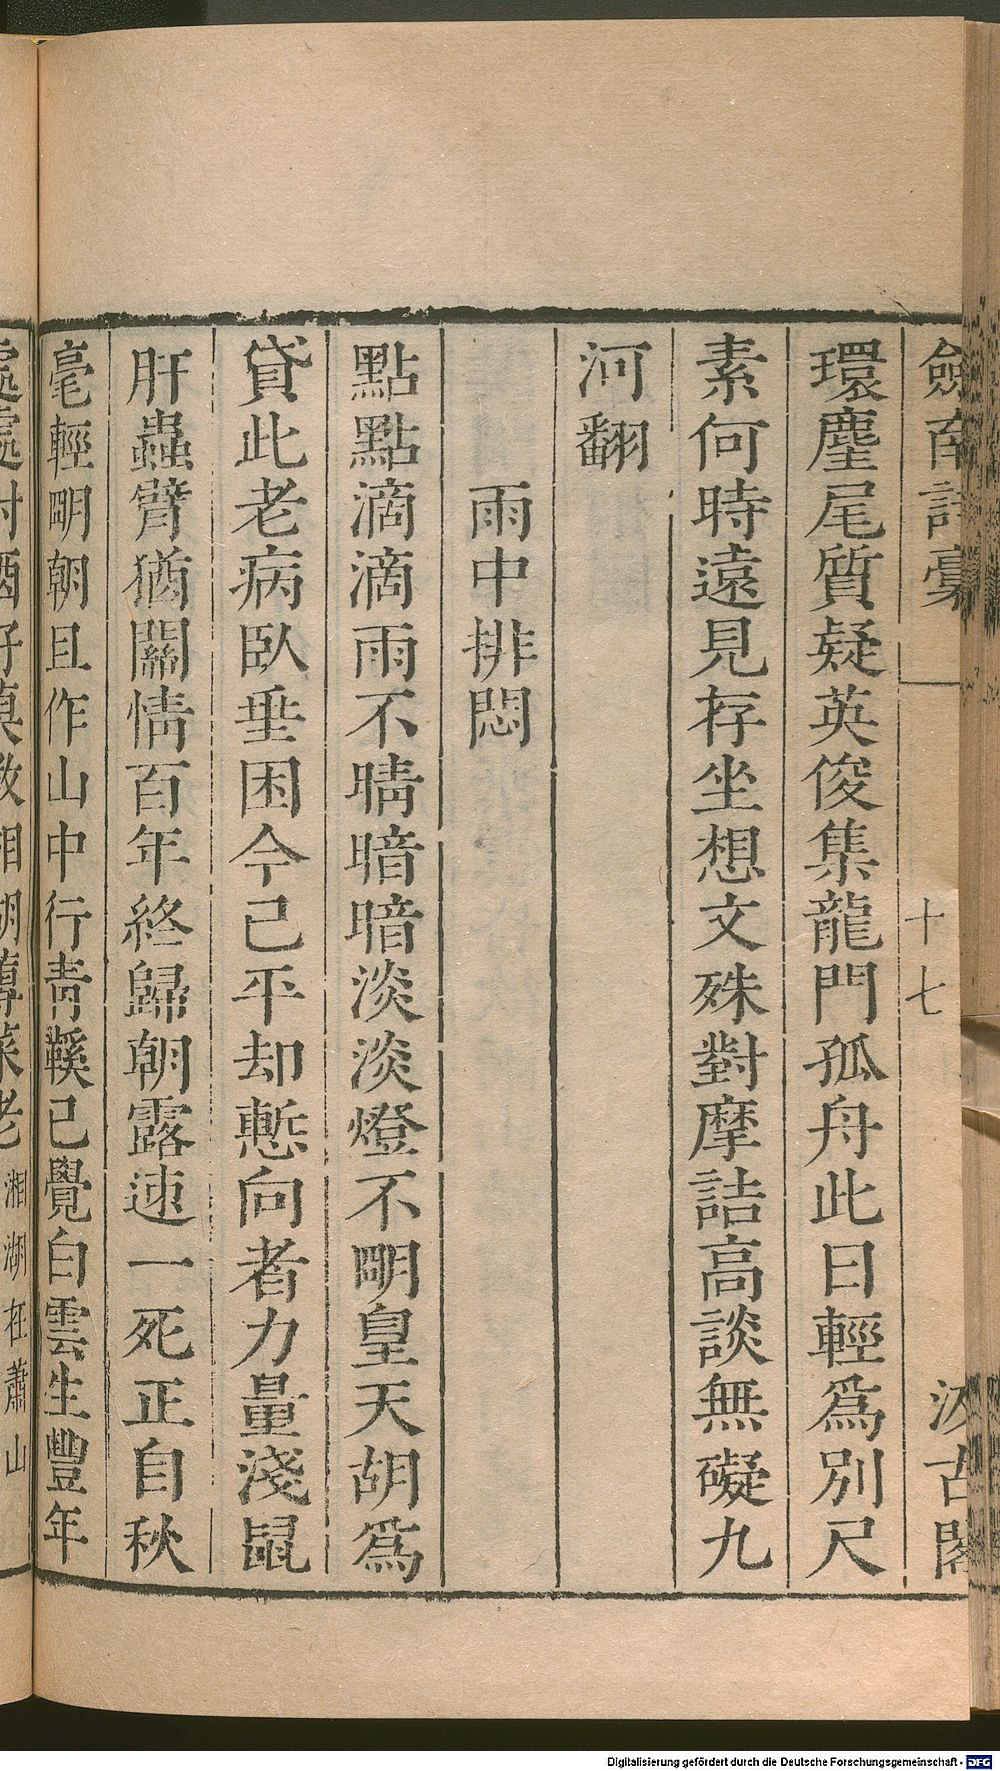 劒南詩稾 十七 汲古閣
環麈尾質疑英俊集龍門孤舟此日輕爲別尺
素何時遠見存坐想文殊對摩詰高談無礙九
河翻
雨中排悶
點點滴滴雨不晴暗暗淡淡燈不明皇天胡爲
貸此老病臥垂困今已平却慙向者力量淺鼠
肝蟲臂猶關情百年終歸朝露速一死正自秋
毫輕明朝且作山中行青鞵已覺白雲生豐年
處處村酒好莫敎湘湖蓴菜老 湘湖在蕭山
Digitalisierung gefördert durch die Deutsche Forschungsgemeinschaft - DFG